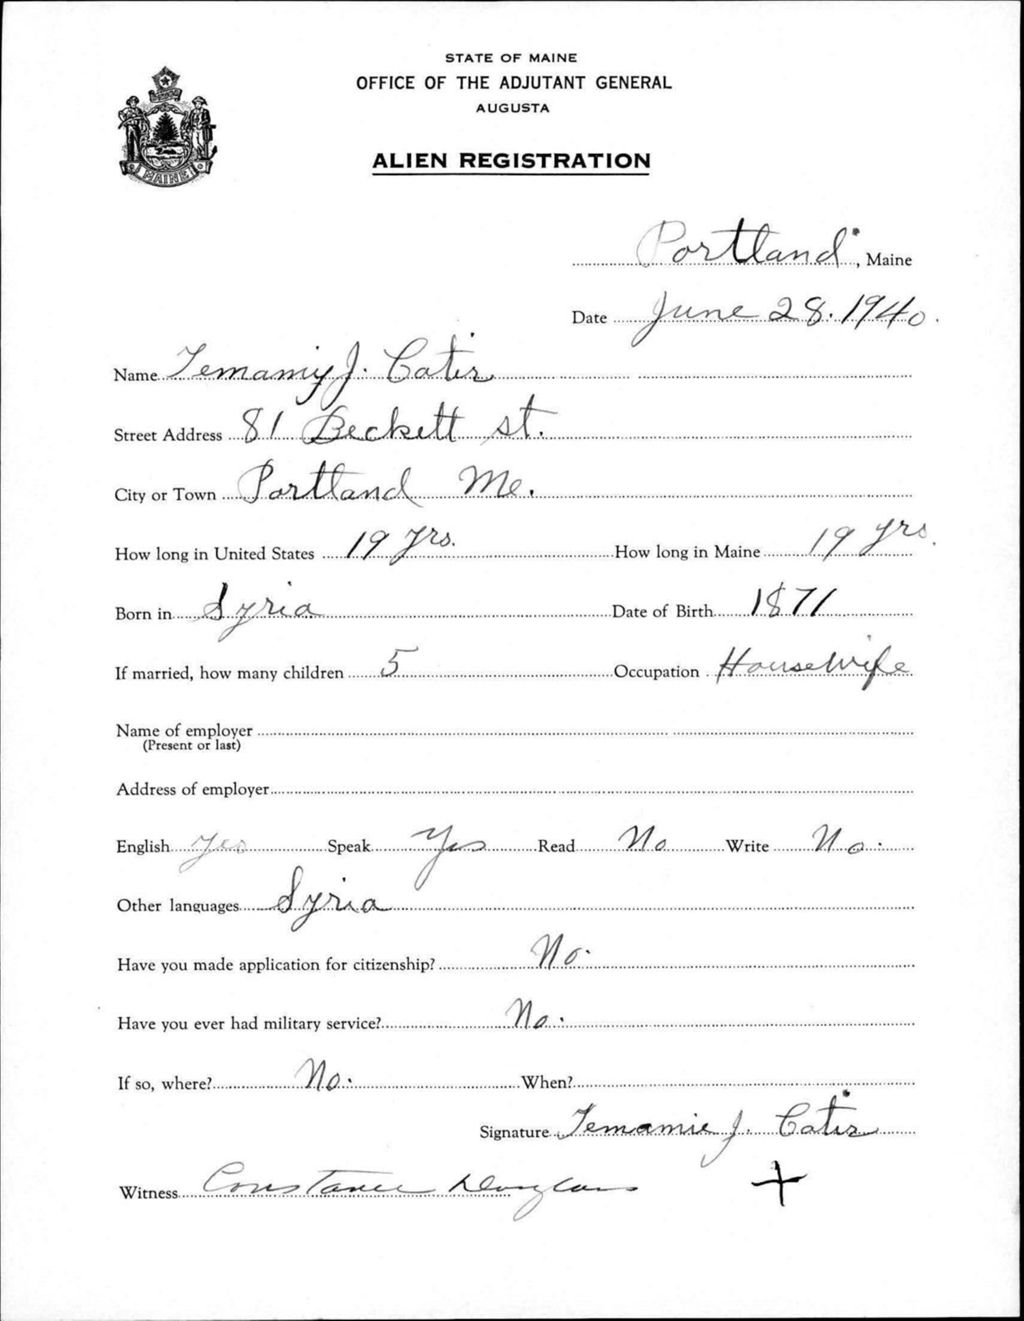 STATE OF MAINE
OFFICE OF THE ADJUTANT GENERAL
AUGUSTA
ALIEN REGISTRATION
MAINE
Portland, Maine
Date June 28. 1940.
Name Temamiy J. Cater
Street Address 81 Beckett st.
City or Town Portland Me.
How long in United States 19 yrs. How long in Maine 19 yrs.
Born in Syria Date of Birth 1871
If married, how many children 5 Occupation Housewife
Name of employer
(Present or last)
Address of employer
English Yes Speak Yes Read No Write No.
Other languages Syria
Have you made application for citizenship? No.
Have you ever had military service? No.
If so, where? No. When?
Signature Temamie J. Cater
Witness Constance Douglass +